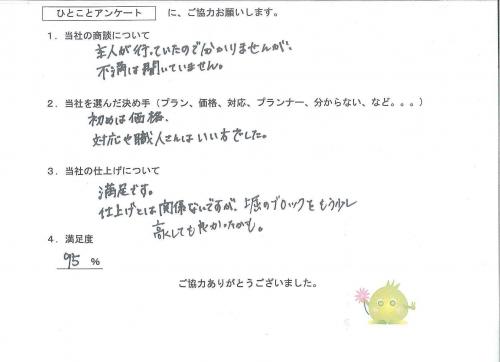 ひとことアンケート に、ご協力お願いします。
1．当社の商談について
主人が行っていたので分かりませんが、
不満は聞いていません。
2．当社を選んだ決め手（プラン、価格、対応、プランナー、分からない、など。。。）
初めは価格、
対応や職人さんはいい方でした。
3．当社の仕上げについて
満足です。
仕上げとは関係ないですが、塀のブロックをもう少し
高くしても良かったかも。
4．満足度
95 %
ご協力ありがとうございました。